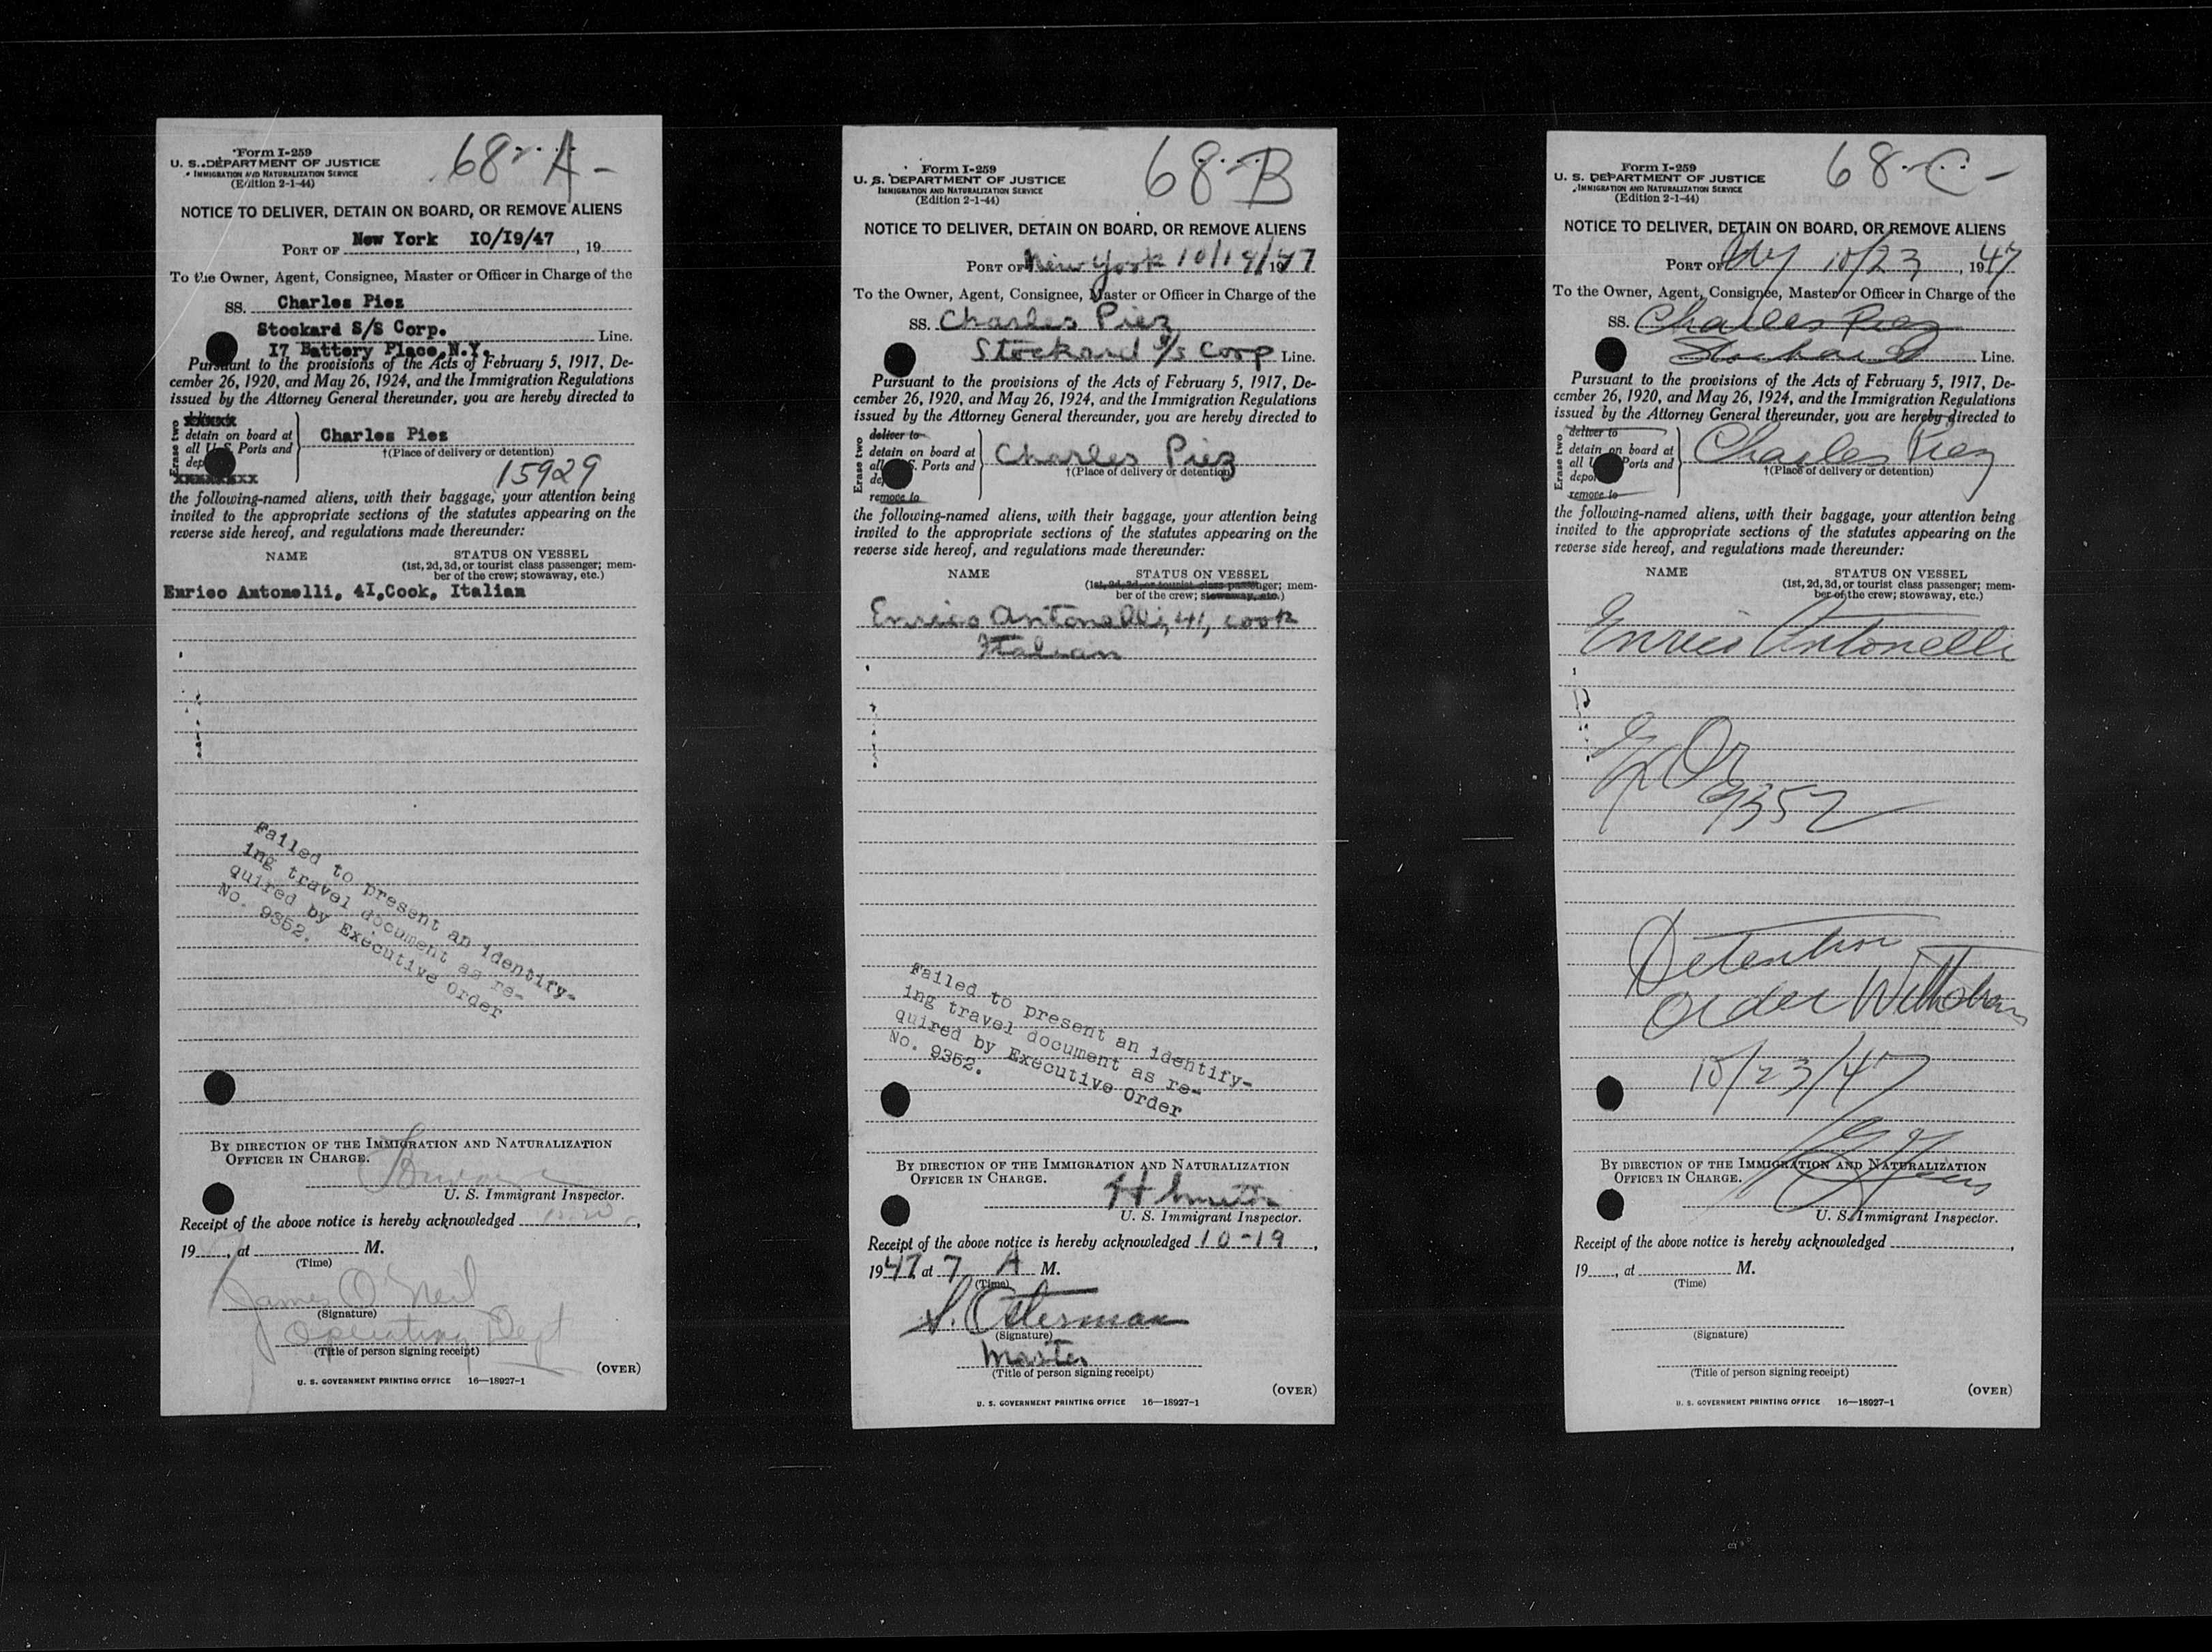 68-A-
Form I-259
U. S. DEPARTMENT OF JUSTICE
IMMIGRATION AND NATURALIZATION SERVICE
(Edition 2-1-44)
NOTICE TO DELIVER, DETAIN ON BOARD, OR REMOVE ALIENS
PORT OF New York 10/19/47, 19
To the Owner, Agent, Consignee, Master or Officer in Charge of the
SS. Charles Piez
Stockard S/S Corp. Line.
17 Battery Place, N.Y.
Pursuant to the provisions of the Acts of February 5, 1917, De-
cember 26, 1920, and May 26, 1924, and the Immigration Regulations
issued by the Attorney General thereunder, you are hereby directed to
Erase two
detain on board at
all U. S. Ports and
Charles Piez
†(Place of delivery or detention)
15929
the following-named aliens, with their baggage, your attention being
invited to the appropriate sections of the statutes appearing on the
reverse side hereof, and regulations made thereunder:
NAME STATUS ON VESSEL
(1st, 2d, 3d, or tourist class passenger; mem-
ber of the crew; stowaway, etc.)
Enrico Antonelli, 41, Cook, Italian
Failed to present an identify-
ing travel document as re-
quired by Executive Order
No. 9352.
BY DIRECTION OF THE IMMIGRATION AND NATURALIZATION
OFFICER IN CHARGE.
U. S. Immigrant Inspector.
Receipt of the above notice is hereby acknowledged
19 , at M.
(Time)
James O'Neil
(Signature)
Operating Dept
(Title of person signing receipt)
(OVER)
U. S. GOVERNMENT PRINTING OFFICE 16—18927-1
68-B
Form I-259
U. S. DEPARTMENT OF JUSTICE
IMMIGRATION AND NATURALIZATION SERVICE
(Edition 2-1-44)
NOTICE TO DELIVER, DETAIN ON BOARD, OR REMOVE ALIENS
PORT OF New York 10/19/1947
To the Owner, Agent, Consignee, Master or Officer in Charge of the
SS. Charles Piez
Stockard S/S Corp Line.
Pursuant to the provisions of the Acts of February 5, 1917, De-
cember 26, 1920, and May 26, 1924, and the Immigration Regulations
issued by the Attorney General thereunder, you are hereby directed to
Erase two
deliver to
detain on board at
all U. S. Ports and
remove to
Charles Piez
†(Place of delivery or detention)
the following-named aliens, with their baggage, your attention being
invited to the appropriate sections of the statutes appearing on the
reverse side hereof, and regulations made thereunder:
NAME STATUS ON VESSEL
(1st, 2d, 3d, or tourist class passenger; mem-
ber of the crew; stowaway, etc.)
Enrico Antonelli, 41, cook
Italian
Failed to present an identify-
ing travel document as re-
quired by Executive Order
No. 9352.
BY DIRECTION OF THE IMMIGRATION AND NATURALIZATION
OFFICER IN CHARGE.
U. S. Immigrant Inspector.
Receipt of the above notice is hereby acknowledged 10-19,
1947, at 7 A M.
(Time)
S. Osterman
(Signature)
Master
(Title of person signing receipt)
(OVER)
U. S. GOVERNMENT PRINTING OFFICE 16—18927-1
68-C-
Form I-259
U. S. DEPARTMENT OF JUSTICE
IMMIGRATION AND NATURALIZATION SERVICE
(Edition 2-1-44)
NOTICE TO DELIVER, DETAIN ON BOARD, OR REMOVE ALIENS
PORT OF NY 10/23, 1947
To the Owner, Agent, Consignee, Master or Officer in Charge of the
SS. Charles Piez
Stockard Line.
Pursuant to the provisions of the Acts of February 5, 1917, De-
cember 26, 1920, and May 26, 1924, and the Immigration Regulations
issued by the Attorney General thereunder, you are hereby directed to
Erase two
deliver to
detain on board at
all U. S. Ports and
remove to
Charles Piez
†(Place of delivery or detention)
the following-named aliens, with their baggage, your attention being
invited to the appropriate sections of the statutes appearing on the
reverse side hereof, and regulations made thereunder:
NAME STATUS ON VESSEL
(1st, 2d, 3d, or tourist class passenger; mem-
ber of the crew; stowaway, etc.)
Enrico Antonelli
Ex Or
9352
Detention
order Withdrawn
10/23/47
BY DIRECTION OF THE IMMIGRATION AND NATURALIZATION
OFFICER IN CHARGE.
U. S. Immigrant Inspector.
Receipt of the above notice is hereby acknowledged
19 , at M.
(Time)
(Signature)
(Title of person signing receipt)
(OVER)
U. S. GOVERNMENT PRINTING OFFICE 16—18927-1